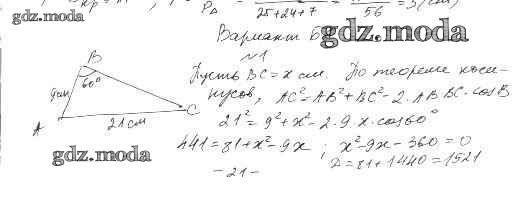 gdz.moda
P_Δ 25+24+7 56 = 3 (см)
Вариант Б
gdz.moda
№1
B
60°
9см
A
C
21см
Пусть BC = x см. По теореме коси-
нусов, AC² = AB² + BC² - 2·AB·BC·cosB
21² = 9² + x² - 2·9·x·cos60°
441 = 81 + x² - 9x ; x² - 9x - 360 = 0
D = 81 + 1440 = 1521
gdz.moda
- 21 -